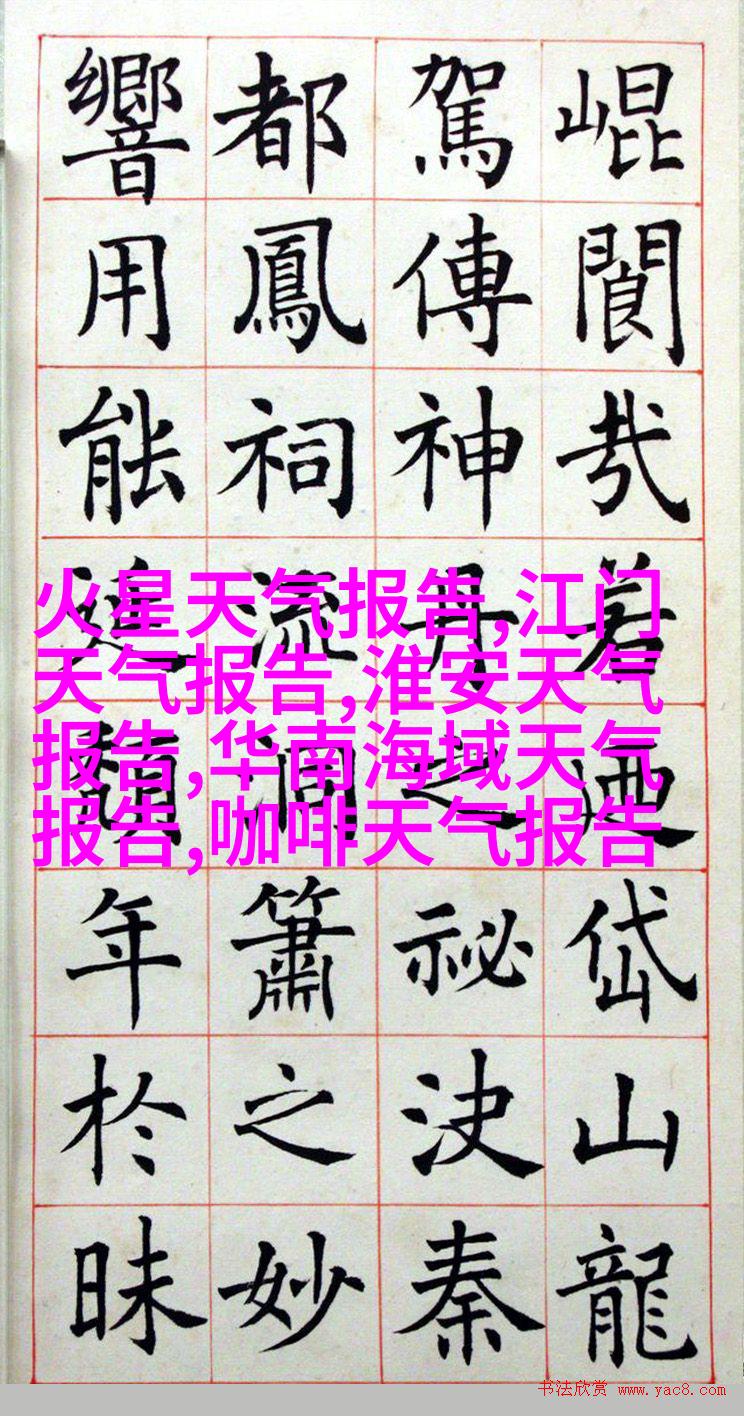 崐閬哉若迺岱山龍
駕傳神丹之祕決秦
都鳳祠流潤簫之妙
響用能延頹年於昧
火星天气报告,江门
天气报告,淮安天气
报告,华南海域天气
报告,咖啡天气报告
书法欣赏 www.yac8.com